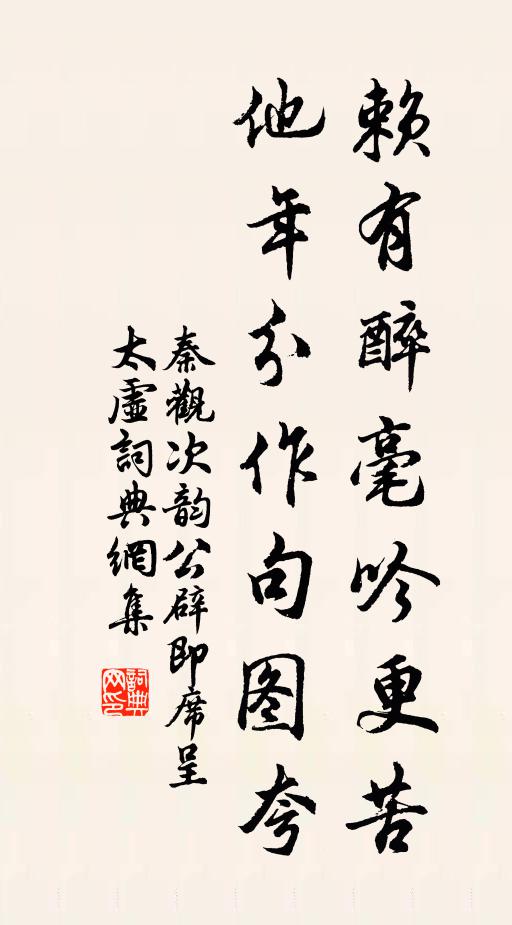 賴有醉毫吟更苦
他年分作句图夸
秦觀次韵公辟即席呈
太虛詞典網集
詞典网印